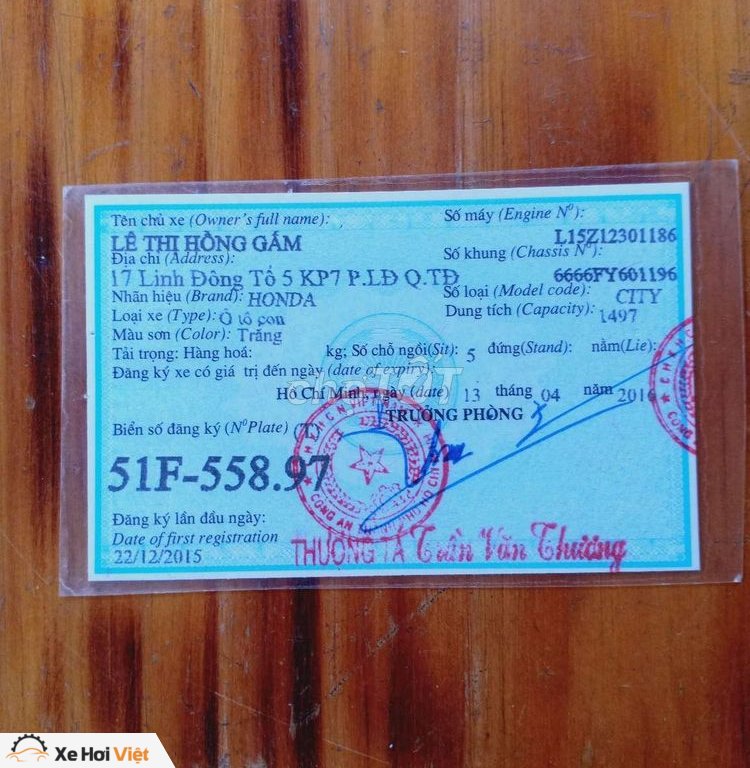 Tên chủ xe (Owner's full name):
LÊ THỊ HỒNG GẤM
Địa chỉ (Address):
17 Linh Đông Tổ 5 KP7 P.LĐ Q.TĐ
Nhãn hiệu (Brand): HONDA
Loại xe (Type): Ô tô con
Màu sơn (Color): Trắng
Số máy (Engine N⁰):
L15Z12301186
Số khung (Chassis N⁰):
6666FY601196
Số loại (Model code): CITY
Dung tích (Capacity): 1497
Tải trọng: Hàng hoá: kg; Số chỗ ngồi(Sit): 5 đứng(Stand): nằm(Lie):
Đăng ký xe có giá trị đến ngày (date of expiry):
chợTỐT
Hồ Chí Minh, ngày (date) 13 tháng 04 năm 2016
TRƯỞNG PHÒNG
Biển số đăng ký (N⁰Plate) (T)
51F-558.97
Đăng ký lần đầu ngày:
Date of first registration
22/12/2015
THƯỢNG TÁ Trần Văn Thương
Xe Hơi Việt